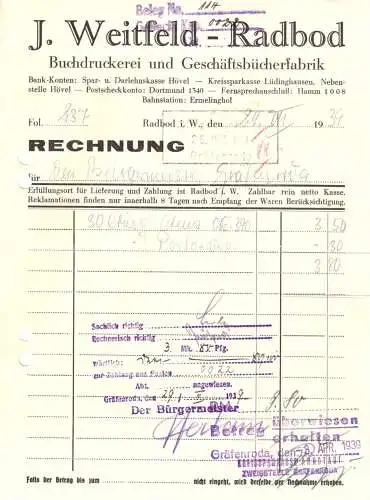 Beleg No. 114
0022
J. Weitfeld - Radbod
Buchdruckerei und Geschäftsbücherfabrik
Bank-Konten: Spar- u. Darlehnskasse Hövel — Kreissparkasse Lüdinghausen, Neben-
stelle Hövel — Postscheckkonto: Dortmund 1340 — Fernsprechanschluß: Hamm 1008
Bahnstation: Ermelinghof
Fol. 237 Radbod i. W., den 1939
RECHNUNG
für den Bürgermeister Gräfenroda
Erfüllungsort für Lieferung und Zahlung ist Radbod i. W. Zahlbar rein netto Kasse.
Reklamationen finden nur innerhalb 8 Tagen nach Empfang der Waren Berücksichtigung.
30 3 50
- 30
3 80
Sachlich richtig
Rechnerisch richtig
3 Mk. Pfg.
wörtlich:
zur Zahlung aus Posten
0022
Abt. angewiesen.
Gräfenroda, den 29. 1939
Der Bürgermeister
3.80
Betrag überwiesen
erhalten
Gräfenroda, den APR. 1939
KREISSPARKASSE ARNSTADT
ZWEIGSTELLE GRÄFENRODA
Falls der Betrag bis zum nicht eingeht, wird derselbe per Nachnahme erhoben.